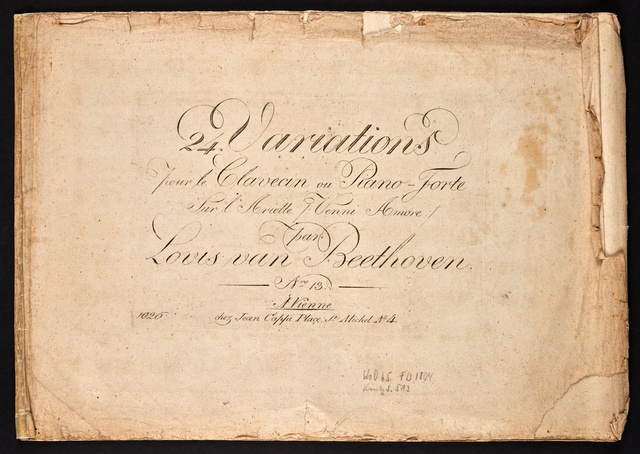 24. Variations
pour le Clavecin ou Piano-Forte
Sur l'Ariette /:Venni Amore:/
par
Lovis van Beethoven.
No. 13.
A Vienne
1026 chez Jean Cappi Place St. Michel No. 4.
WoO 65 FD 1804
Kinsky S. 513